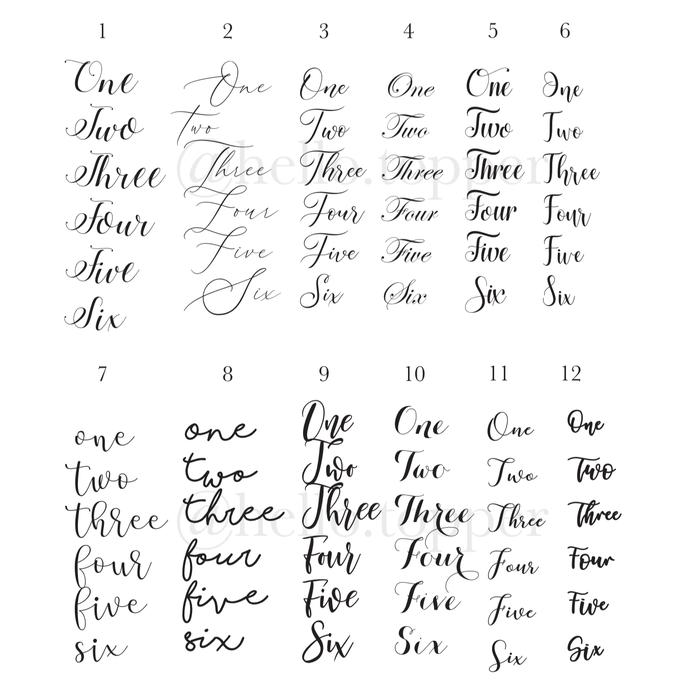 1 2 3 4 5 6
One One One One One One
Two Two Two Two Two Two
Three Three Three Three Three Three
Four Four Four Four Four Four
Five Five Five Five Five Five
Six Six Six Six Six Six
@hello.topper
7 8 9 10 11 12
one one One One One One
two two Two Two Two Two
three three Three Three Three Three
four four Four Four Four Four
five five Five Five Five Five
six six Six Six Six Six
@hello.topper